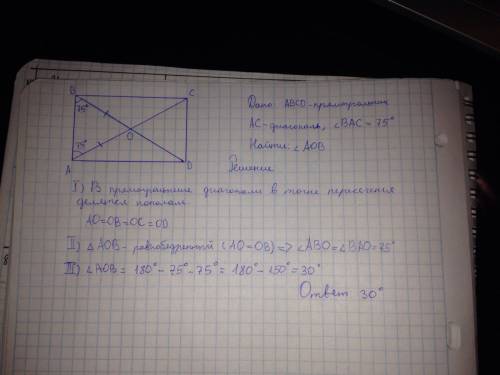 B
C
75°
O
75°
A
D
Дано: ABCD-прямоугольник
AC-диагональ, ∠BAC = 75°
Найти: ∠AOB
Решение
I) В прямоугольнике диагонали в точке пересечения
делятся пополам.
AO=OB=OC=OD
II) △AOB - равнобедренный (AO=OB) => ∠ABO=∠BAO=75°
III) ∠AOB = 180° - 75° - 75° = 180° - 150° = 30°
Ответ 30°